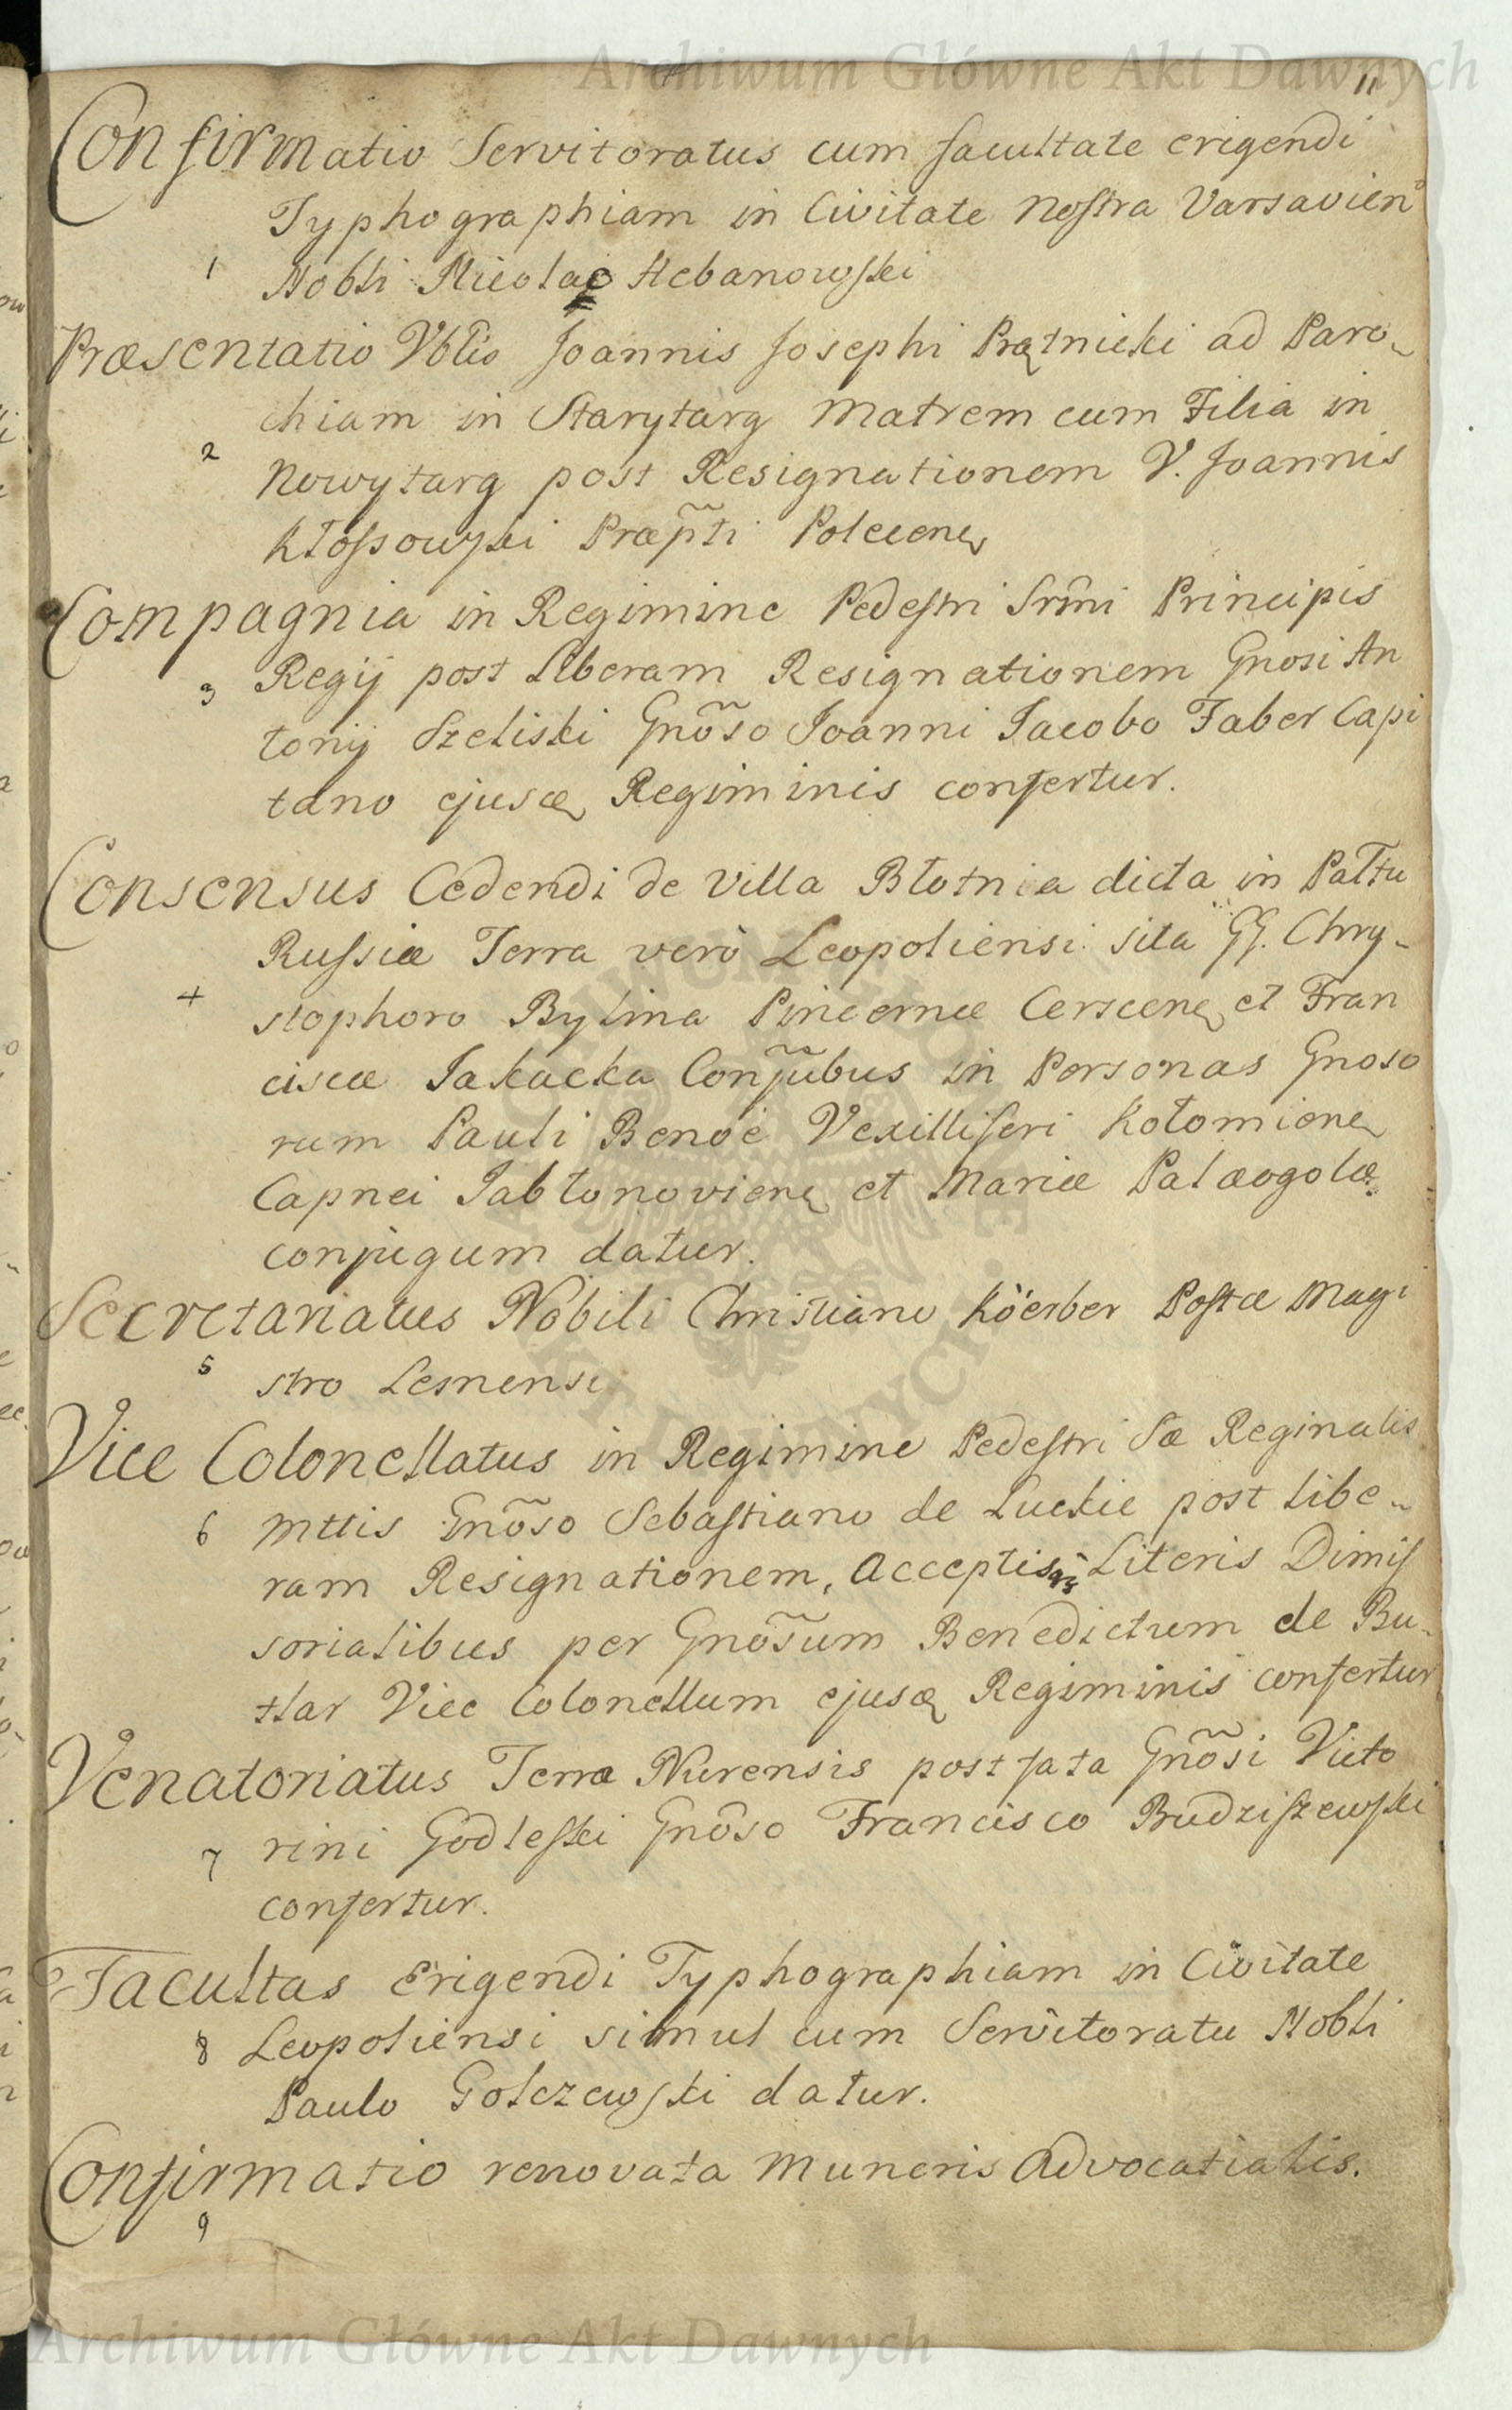 Archiwum Główne Akt Dawnych
11
Confirmatio Servitoratus cum facultate erigendi
Typhographiam in Civitate Nostra Varsavien
1 Nobli Nicolao Hebanowski
Præsentatio Vblis Joannis Josephi Prątnicki ad Paro-
chiam in Starytarg Matrem cum Filia in
2 Nowytarg post Resignationem V. Joannis
Kłossowski Præpti Polecen
Compagnia in Regimine Pedestri Srmi Principis
3 Regij post Liberam Resignationem Gnosi An
tonij Szeliski Gnoso Joanni Jacobo Faber Capi
tano ejusdæ Regiminis confertur.
Consensus Cedendi de Villa Błotnia dicta in Paltu
Russiæ Terra verò Leopoliensi sita GG. Chry-
4 stophoro Bylina Pincernæ Cerscen et Fran
ciscæ Jakacka Conjubus in Personas Gnoso
rum Pauli Benoe Vexilliferi Kołomien
Capnei Jabłonovien et Mariæ Palæogolæ
conjugum datur.
Secretariatus Nobili Christiano Köerber Postæ Magi
5 stro Lesnensi
Vice Colonellatus in Regimine Pedestri Sæ Reginalis
6 Mttis Gnoso Sebastiano de Luckie post libe-
ram Resignationem, Acceptisqз Literis Dimis
sorialibus per Gnosum Benedictum de Bu-
ttlar Vice Colonellum ejusdæ Regiminis confertur
Venatoriatus Terræ Nurensis post fata Gnosi Victo
7 rini Godleski Gnoso Francisco Brudziszewski
confertur.
Facultas Erigendi Typhographiam in Civitate
8 Leopoliensi simul cum Servitoratu Nobli
Paulo Golczewski datur.
Confirmatio renovata Muneris Advocatialis.
9
Archiwum Główne Akt Dawnych